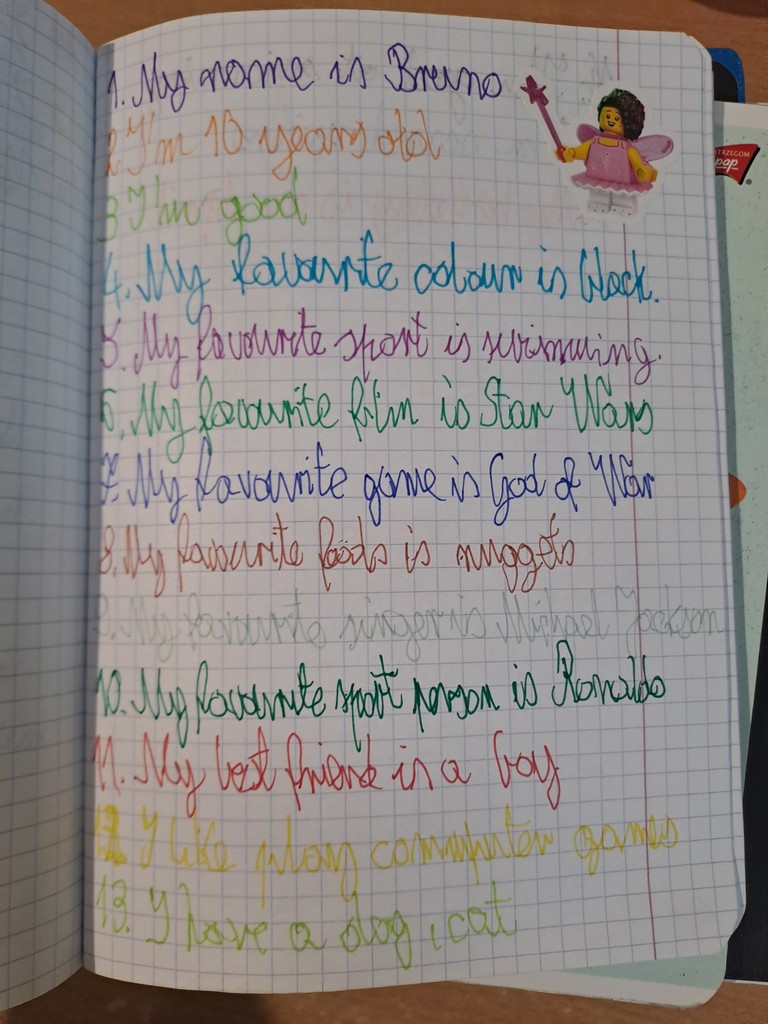 1. My name is Bruno
2 I'm 10 years old
3 I'm good
4. My favourite colour is black.
5. My favourite sport is swimming.
6. My favourite film is Star Wars
7. My favourite game is God of War
8. My favourite foods is nuggets
9. My favourite singer is Michael Jackson
10. My favourite sport person is Ronaldo
11. My best friend is a boy
12. I like play computer games
13. I have a dog, cat
STRZEGOM
pop